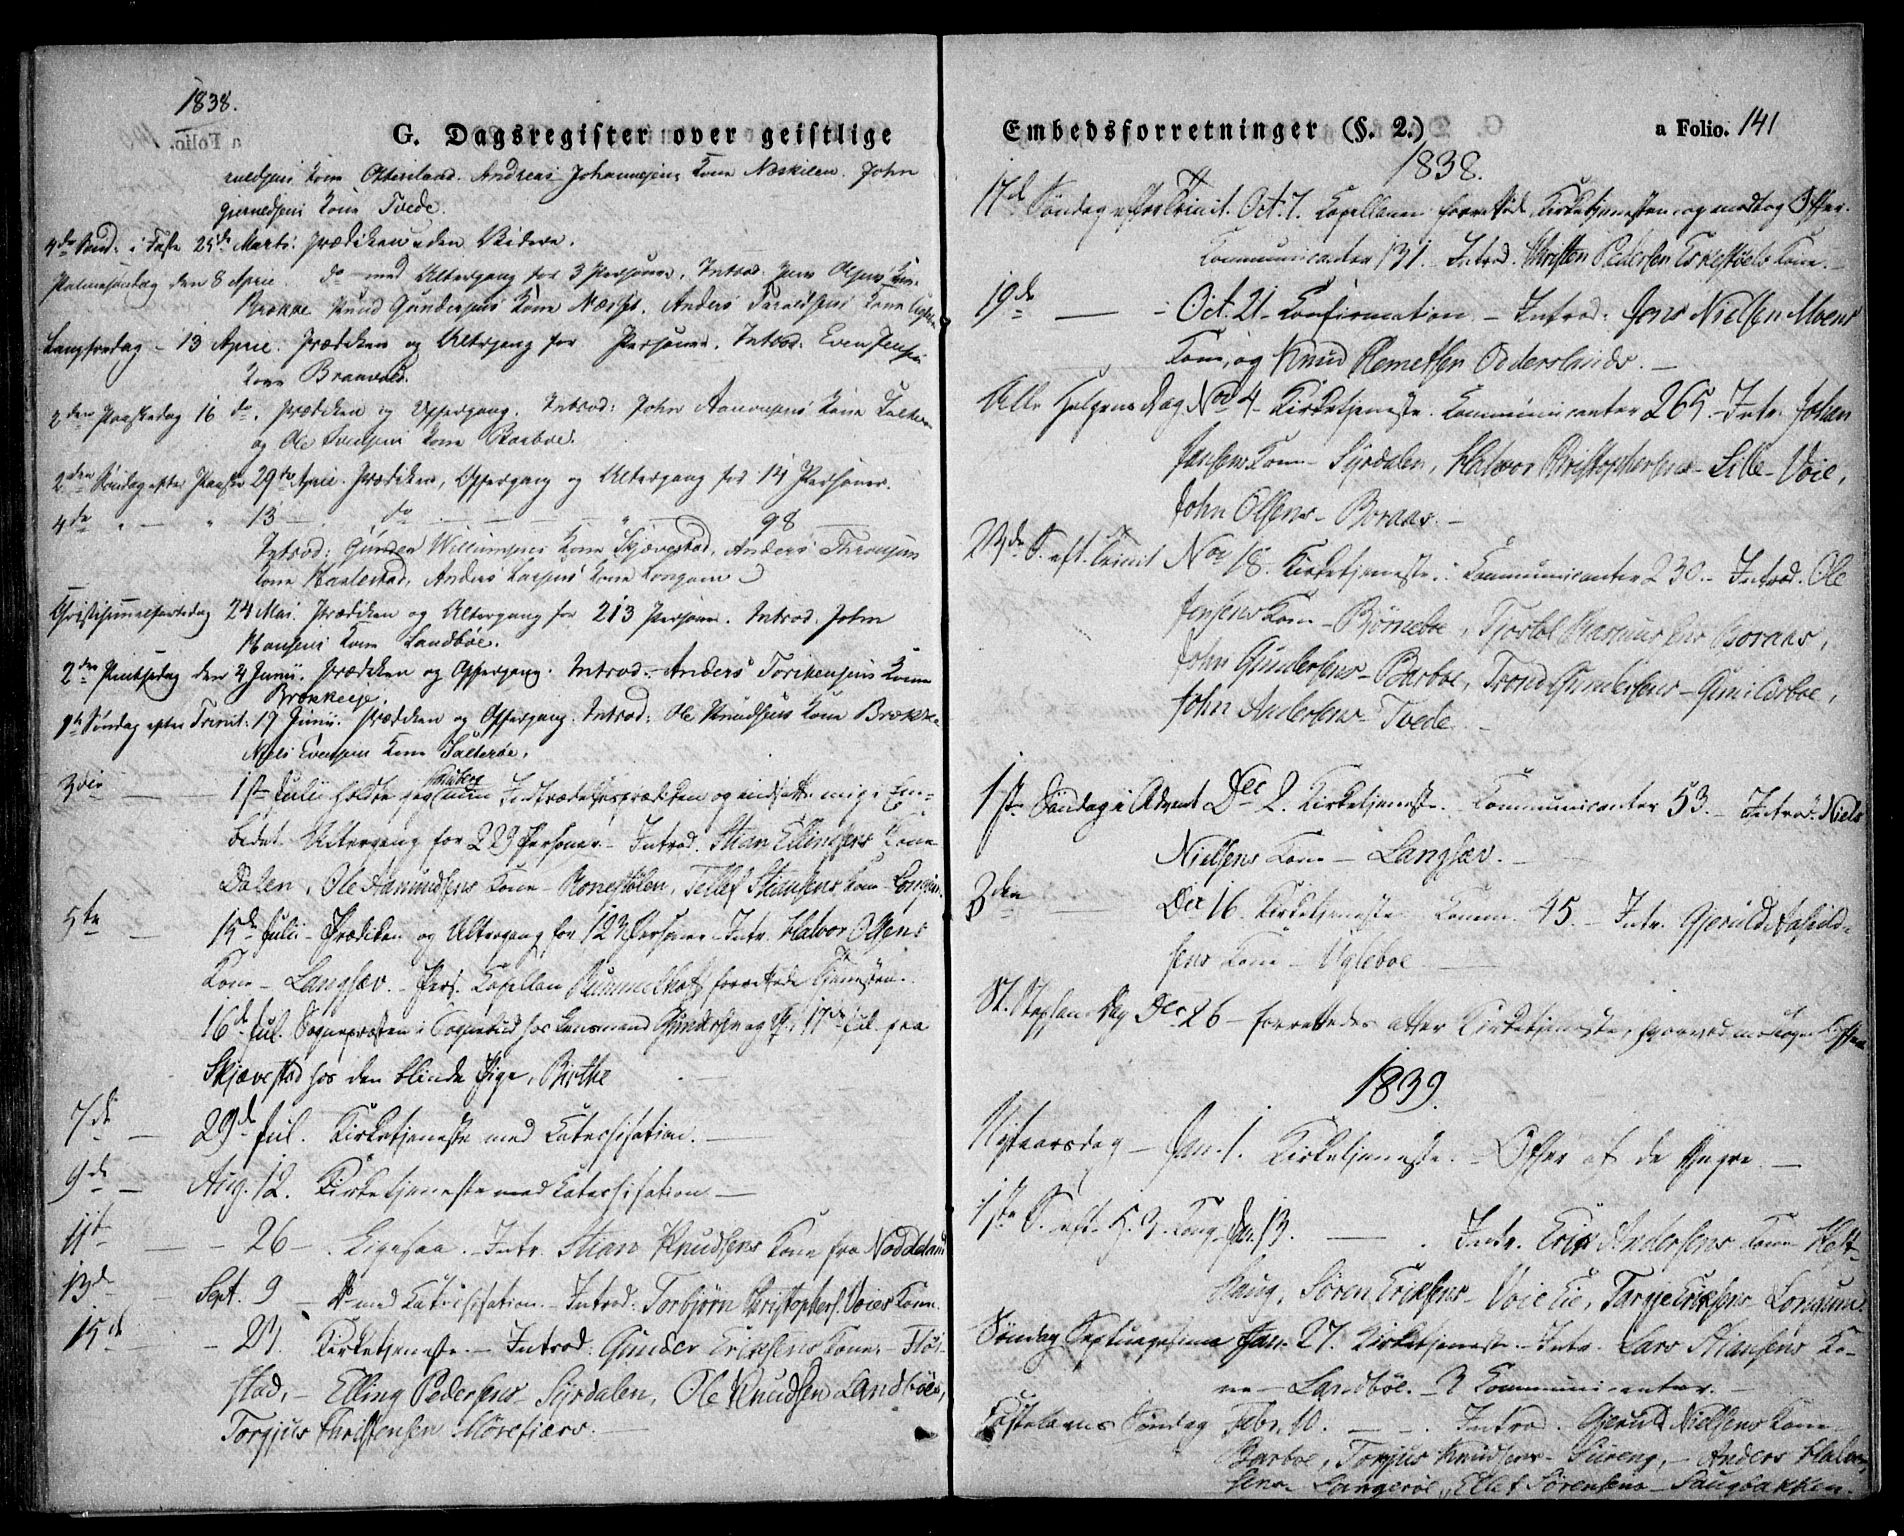 1838.
G. Dagsregister over geistlige
Kone Otterland. Andreas Johannesens Kone Næskilen. John
Gjeruldsens Kone Tvede.
4de Sønd: i Faste 25de Marts. Prædiken uden Videre.
Palmesøndag den 8 April. do med Altergang for 3 Personer. Introd: Jens Olsens Kone
Brække Knud Gundersens Kone Næss. Anders Taraldsens Kone
Langfredag - 13 April. Prædiken og Altergang for Personer. Introd: Even Jensens
Kone Braavold.
2den Paaskedag 16 do. Prædiken og Offergang. Introd: John Aanonsens Kone
og Ole Svensens Kone Staaboe.
2den Søndag efter Paaske 29de April. Prædiken, Offergang og Altergang for 14 Personer.
4de " — " 13 — do — — " — 98 —
Introd: Gunder Willumsens Kone Skjævestad, Anders Thronsens
Kone Haalestad, Anders Larsens Kone Longom
Christihimmelfartsdag 24 Mai. Prædiken og Altergang for 213 Personer. Introd. John
Hansens Kone Landbøe.
2den Pintsedag den 4 Junii. Prædiken og Offergang. Introd: Anders Torikensens Kone
Brækkeje.
1ste Søndag efter Trinit: 17 Junii. Prædiken og Offergang. Introd: Ole Knudsens Kone Brække
Niels Evensens Kone Salterøe.
3die — 1ste Julii holdte jeg min Indtrædelsesprædiken og indsatte mig i Em-
bedet. Altergang for 229 Personer. - Introd. Stian Ellingsens Kone
Dalen, Ole Aamundsens Kone - Ronestølen, Tellef Stiansens Kone - Longum.
5te — 15de Julii - Prædiken og Altergang for 123 Personer - Intr. Halvor Olsens
Kone - Langsæv. - Pers. Kapellan Rummelhof forrettede Tjenesten.
16de Jul. Sognepræsten i Sognebud hos Lensmand Gundersen og 17de Jul. paa
Skjævestad hos den blinde Pige, Birthe —
7de — 29de Jul. Kirketjeneste med Katechisation. —
9de — Aug. 12. Kirketjeneste med Katechisation —
11te — - 26 - . Ligesaa. - Intr. Stian Knudsens Kone fra Noddeland
13de — Sept. 9 - Do med Katechisation. - Introd: Torbjørn Christophers. Voies Kone.
15de — - 23. Kirketjeneste. - Introd: Gunder Eriksens Kone - Fløi-
stad, - Elling Pedersens - Syrdalen, Ole Knudsen Landbøes,
Torgjus Christensen Mørefjærs. —
Embedsforretninger (§. 2.) a Folio. 141
1838.
17de Søndag efter Trinit. Oct. 7. Kapellanen forrettede Kirketjenesten og modtog Offer.
Communicanter 131. Introd. Christen Pedersen Eskestøels Kone. -
19de — - Oct. 21 - Confirmation. - Introd: Jens Nielsen Moens
Kone, og Knud Clemetsen Odderslands. —
Alle Helgens Dag Nov 4 - Kirketjeneste. Communicanter 265. - Intr. Johan
Jensens Kone - Syrdalen, Halvor Christophersens - Lille-Voie,
John Olsens - Boraas. —
23de S. eft. Trinit Nov 18. Kirketjeneste. Communicanter 230. - Introd. Ole
Jensens Kone - Bjørneboe, Tjostol Rasmus Boraas,
John Gundersens - Barboe, Trond Gundersens - Gunildsboe,
John Andersens - Tvede —
1ste Søndag i Advent Dec 2. Kirketjeneste. Communicanter 53. - Introd. Niels
Nielsens Kone - Langsæv. —
3den — Dec 16. Kirketjeneste Comm. 45. - Intr. Gjeruld
sens Kone - Ugleboe —
St. Stephans Dag Dec 26 - forrettedes atter Kirketjeneste, hvorved modtoges Offer
1839.
Nytaarsdag - Jan. 1. Kirketjeneste. - Offer af de Yngre. —
1ste S. eft. H. 3. Kong. Jan. 13. — . Intr. Erik Andersens Kone Holt-
haug, Søren Eriksens - Voie Eie, Targje Eriksens - Longum.
Søndag Septuagesima Jan. 27. Kirketjeneste - Intr. Lars Stiansens Ko-
ne - Landbøe. - 3 Kommunicanter. —
Fastelavns Søndag Febr. 10. — . Introd. Gjeruld Nielsens Kone
Barboe, Torjus Knudsens - Sureng, - Anders Halvor-
sens - Langerøe, Ellef Sørensens - Haugbakken.